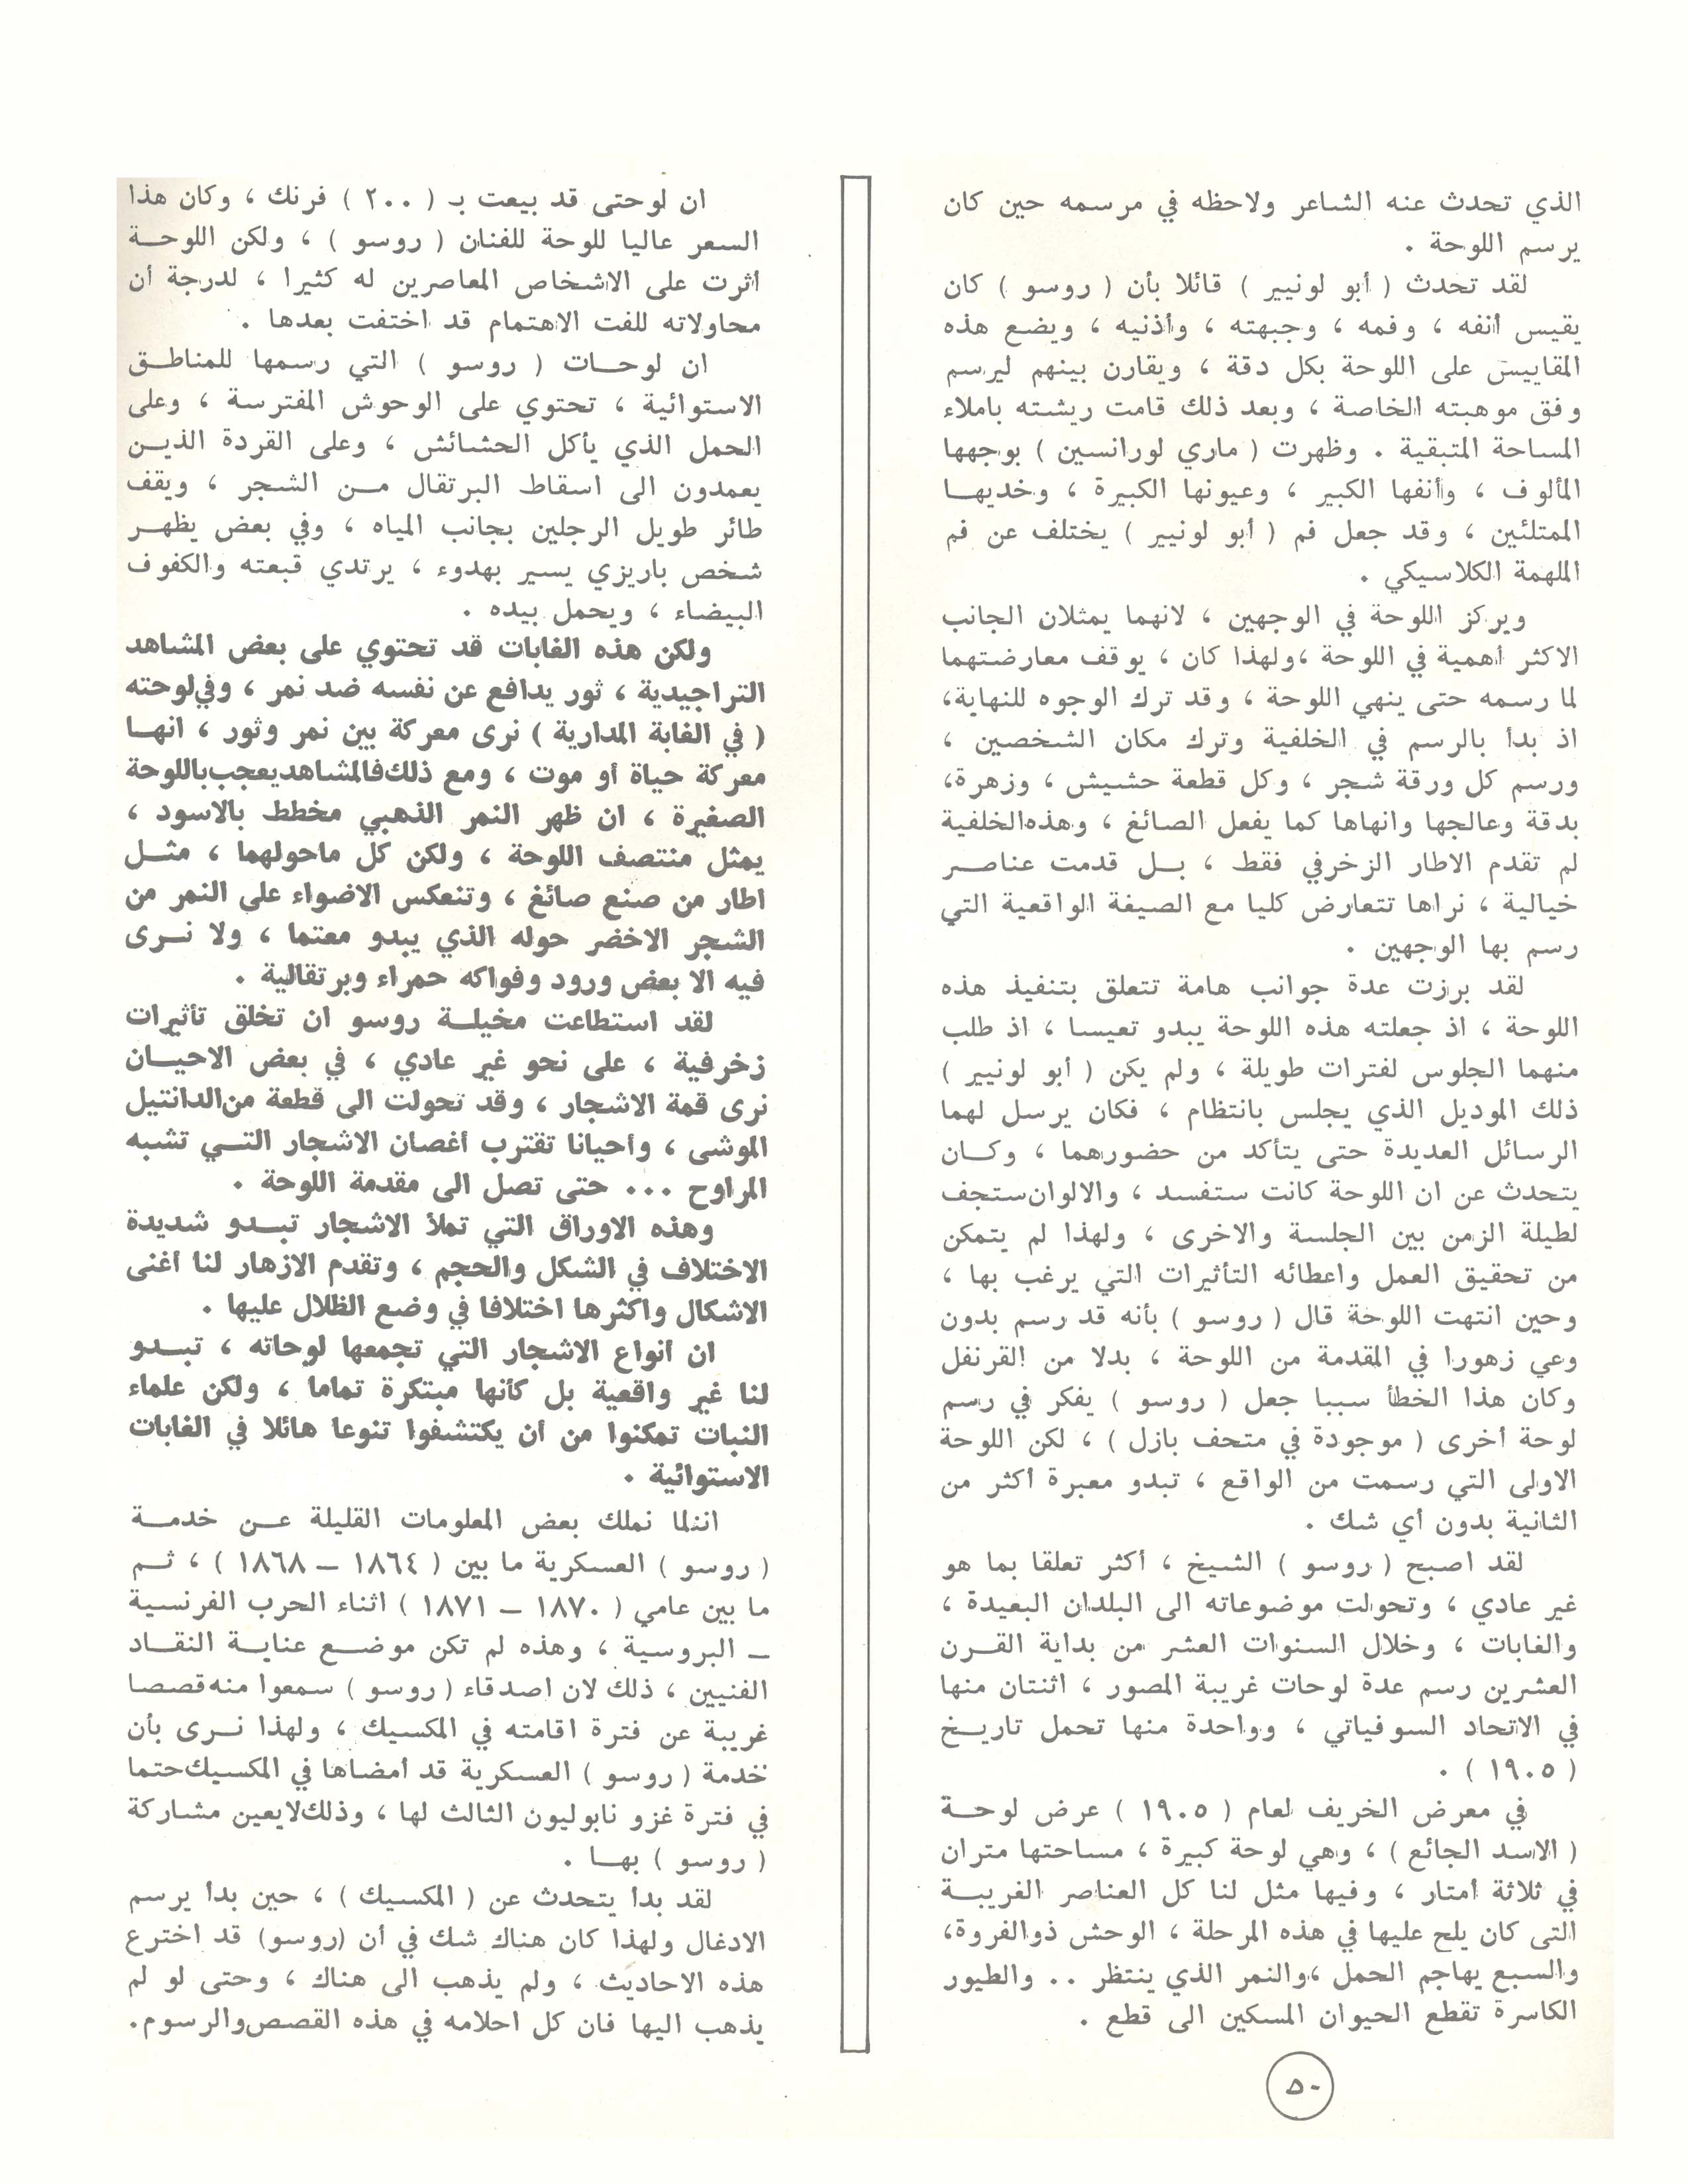 الذي تحدث عنه الشاعر ولاحظه في مرسمه حين كان
يرسم اللوحة .
لقد تحدث ( أبو لونيير ) قائلا بأن ( روسو ) كان
يقيس أنفه ، وفمه ، وجبهته ، وأذنيه ، ويضع هذه
المقاييس على اللوحة بكل دقة ، ويقارن بينهم ليرسم
وفق موهبته الخاصة ، وبعد ذلك قامت ريشته باملاء
المساحة المتبقية . وظهرت ( ماري لورانسين ) بوجهها
المألوف ، وأنفها الكبير ، وعيونها الكبيرة ، وخديهـا
الممتلئين ، وقد جعل فم ( أبو لونيير ) يختلف عن فم
الملهمة الكلاسيكي .
ويركز اللوحة في الوجهين ، لانهما يمثلان الجانب
الاكثر أهمية في اللوحة ،ولهذا كان ، يوقف معارضتهما
لما رسمه حتى ينهي اللوحة ، وقد ترك الوجوه للنهاية،
اذ بدأ بالرسم في الخلفية وترك مكان الشخصين ،
ورسم كل ورقة شجر ، وكل قطعة حشيش ، وزهرة،
بدقة وعالجها وانهاها كما يفعل الصائغ ، وهذه الخلفية
لم تقدم الاطار الزخرفي فقط ، بـل قدمت عناصـر
خيالية ، نراها تتعارض كليا مع الصيغة الواقعية التي
رسم بها الوجهين .
لقد برزت عدة جوانب هامة تتعلق بتنفيذ هذه
اللوحة ، اذ جعلته هذه اللوحة يبدو تعيسا ، اذ طلب
منهما الجلوس لفترات طويلة ، ولم يكن ( أبو لونيير )
ذلك الموديل الذي يجلس بانتظام ، فكان يرسل لهما
الرسائل العديدة حتى يتأكد من حضورهما ، وكـان
يتحدث عن ان اللوحة كانت ستفسد ، والالوان ستجف
لطيلة الزمن بين الجلسة والاخرى ، ولهذا لم يتمكن
من تحقيق العمل واعطائه التأثيرات التي يرغب بها ،
وحين انتهت اللوحة قال ( روسو ) بأنه قد رسم بدون
وعي زهورا في المقدمة من اللوحة ، بدلا من القرنفل
وكان هذا الخطأ سببا جعل ( روسو ) يفكر في رسم
لوحة أخرى ( موجودة في متحف بازل ) ، لكن اللوحة
الاولى التي رسمت من الواقع ، تبدو معبرة أكثر من
الثانية بدون أي شك .
لقد اصبح ( روسو ) الشيخ ، أكثر تعلقا بما هو
غير عادي ، وتحولت موضوعاته الى البلدان البعيدة ،
والغابات ، وخلال السنوات العشر من بداية القـرن
العشرين رسم عدة لوحات غريبة المصور ، اثنتان منها
في الاتحاد السوفياتي ، وواحدة منها تحمل تاريـخ
( ١٩٠٥ ) .
في معرض الخريف لعام ( ١٩٠٥ ) عرض لوحـة
( الاسد الجائع ) ، وهي لوحة كبيرة ، مساحتها متران
في ثلاثة أمتار ، وفيها مثل لنا كل العناصر الغريبـة
التى كان يلح عليها في هذه المرحلة ، الوحش ذو الفروة،
والسبع يهاجم الحمل ،والنمر الذي ينتظر .. والطيور
الكاسرة تقطع الحيوان المسكين الى قطع .
ان لوحتى قد بيعت بـ ( ٢٠٠ ) فرنك ، وكان هذا
السعر عاليا للوحة للفنان ( روسو ) ، ولكن اللوحـة
أثرت على الاشخاص المعاصرين له كثيرا ، لدرجة أن
محاولاته للفت الاهتمام قد اختفت بعدها .
ان لوحـات ( روسو ) التي رسمها للمناطـق
الاستوائية ، تحتوي على الوحوش المفترسة ، وعلى
الحمل الذي يأكل الحشائش ، وعلى القردة الذيـن
يعمدون الى اسقاط البرتقال مـن الشجر ، ويقف
طائر طويل الرجلين بجانب المياه ، وفي بعض يظهـر
شخص باريزي يسير بهدوء ، يرتدي قبعته والكفوف
البيضاء ، ويحمل بيده .
ولكن هذه الغابات قد تحتوي على بعض المشاهد
التراجيدية ، ثور يدافع عن نفسه ضد نمر ، وفي لوحته
( في الغابة المدارية ) نرى معركة بين نمر وثور ، انهـا
معركة حياة أو موت ، ومع ذلك فالمشاهد يعجب باللوحة
الصغيرة ، ان ظهر النمر الذهبي مخطط بالاسود ،
يمثل منتصف اللوحة ، ولكن كل ماحولهما ، مثـل
اطار من صنع صائغ ، وتنعكس الاضواء على النمر من
الشجر الاخضر حوله الذي يبدو معتما ، ولا نـرى
فيه الا بعض ورود وفواكه حمراء وبرتقالية .
لقد استطاعت مخيلـة روسو ان تخلق تأثيرات
زخرفية ، على نحو غير عادي ، في بعض الاحيـان
نرى قمة الاشجار ، وقد تحولت الى قطعة من الدانتيل
الموشى ، وأحيانا تقترب أغصان الاشجار التـي تشبه
المراوح ... حتى تصل الى مقدمة اللوحة .
وهذه الاوراق التي تملأ الاشجار تبـدو شديدة
الاختلاف في الشكل والحجم ، وتقدم الازهار لنا أغنى
الاشكال واكثرها اختلافا في وضع الظلال عليها .
ان أنواع الاشجار التي تجمعها لوحاته ، تبـدو
لنا غير واقعية بل كأنها مبتكرة تماما ، ولكن علماء
النبات تمكنوا من أن يكتشفوا تنوعا هائلا في الغابات
الاستوائية .
اننا نملك بعض المعلومات القليلة عـن خدمـة
( روسو ) العسكرية ما بين ( ١٨٦٤ – ١٨٦٨ ) ، ثـم
ما بين عامي ( ١٨٧٠ – ١٨٧١ ) اثناء الحرب الفرنسية
– البروسية ، وهذه لم تكن موضـع عنايـة النقـاد
الفنيين ، ذلك لان اصدقاء ( روسو ) سمعوا منه قصصا
غريبة عن فترة اقامته في المكسيك ، ولهذا نـرى بأن
خدمة ( روسو ) العسكرية قد أمضاها في المكسيك حتما
في فترة غزو نابوليون الثالث لها ، وذلك لايعين مشاركة
( روسو ) بهـا .
لقد بدأ يتحدث عن ( المكسيك ) ، حين بدأ يرسم
الادغال ولهذا كان هناك شك في أن (روسو) قد اخترع
هذه الاحاديث ، ولم يذهب الى هناك ، وحتى لو لم
يذهب اليها فان كل احلامه في هذه القصص والرسوم.
٥٠